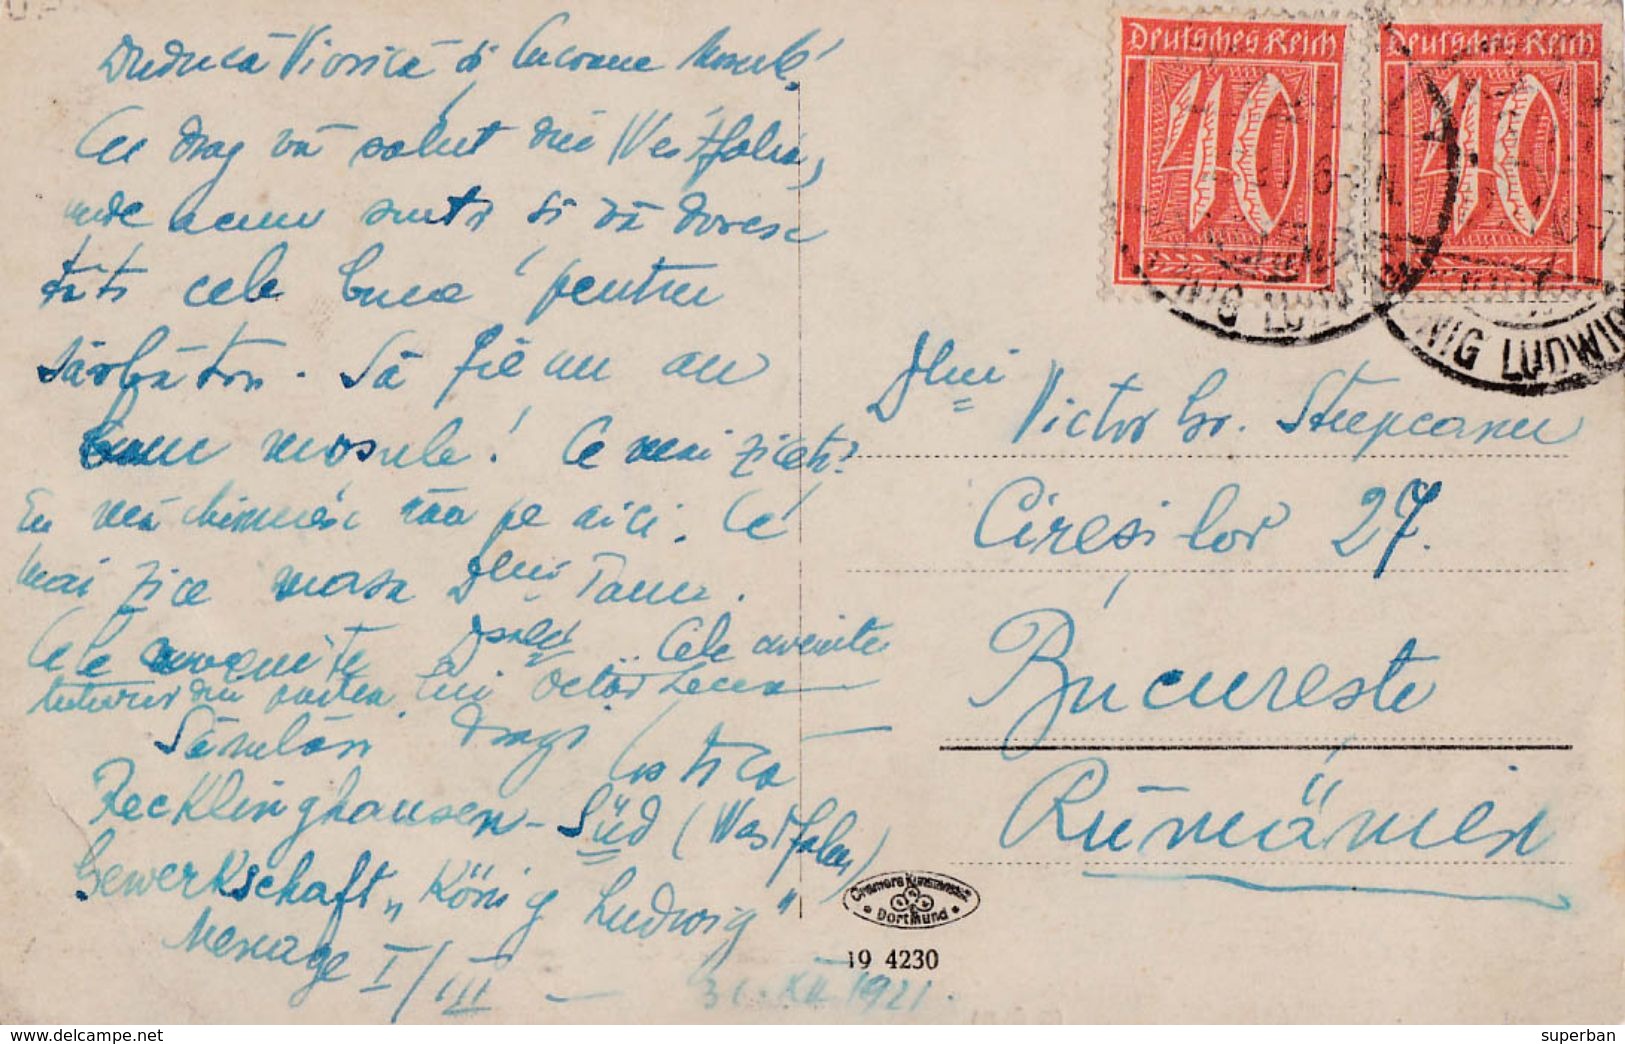 Duducă Viorică și Cucoane Mosule!
Cu drag vă salut din Westfalia,
unde acum sunt și vă doresc
tuturor cele bune pentru
sărbători. Să fie un an
bun mosule! Ce mai ziceți?
Eu mă chinuesc rău pe aici. Ce
mai zice Dlui
Cele cuvenite Cele cuvenite
tuturor din partea lui
Sărutări dragi
Costică
Recklinghausen-Süd (Westfalen)
Gewerkschaft „König Ludwig"
Menage I/III
31.XII.1921.
Deutsches Reich
40
Deutsches Reich
40
KÖNIG LUDWIG
Dlui
Victor Gr.
Cireșilor 27.
București
Rumänien
Cramers Kunstanstalt
Dortmund
19 4230
www.delcampe.net
superban